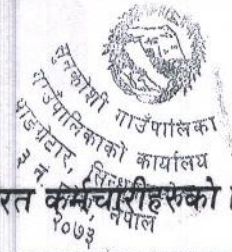 सुनकोशी गाउँपालिका
गाउँपालिकाको कार्यालय
नेपाल
२०७३
रत कर्मचारीहरुको